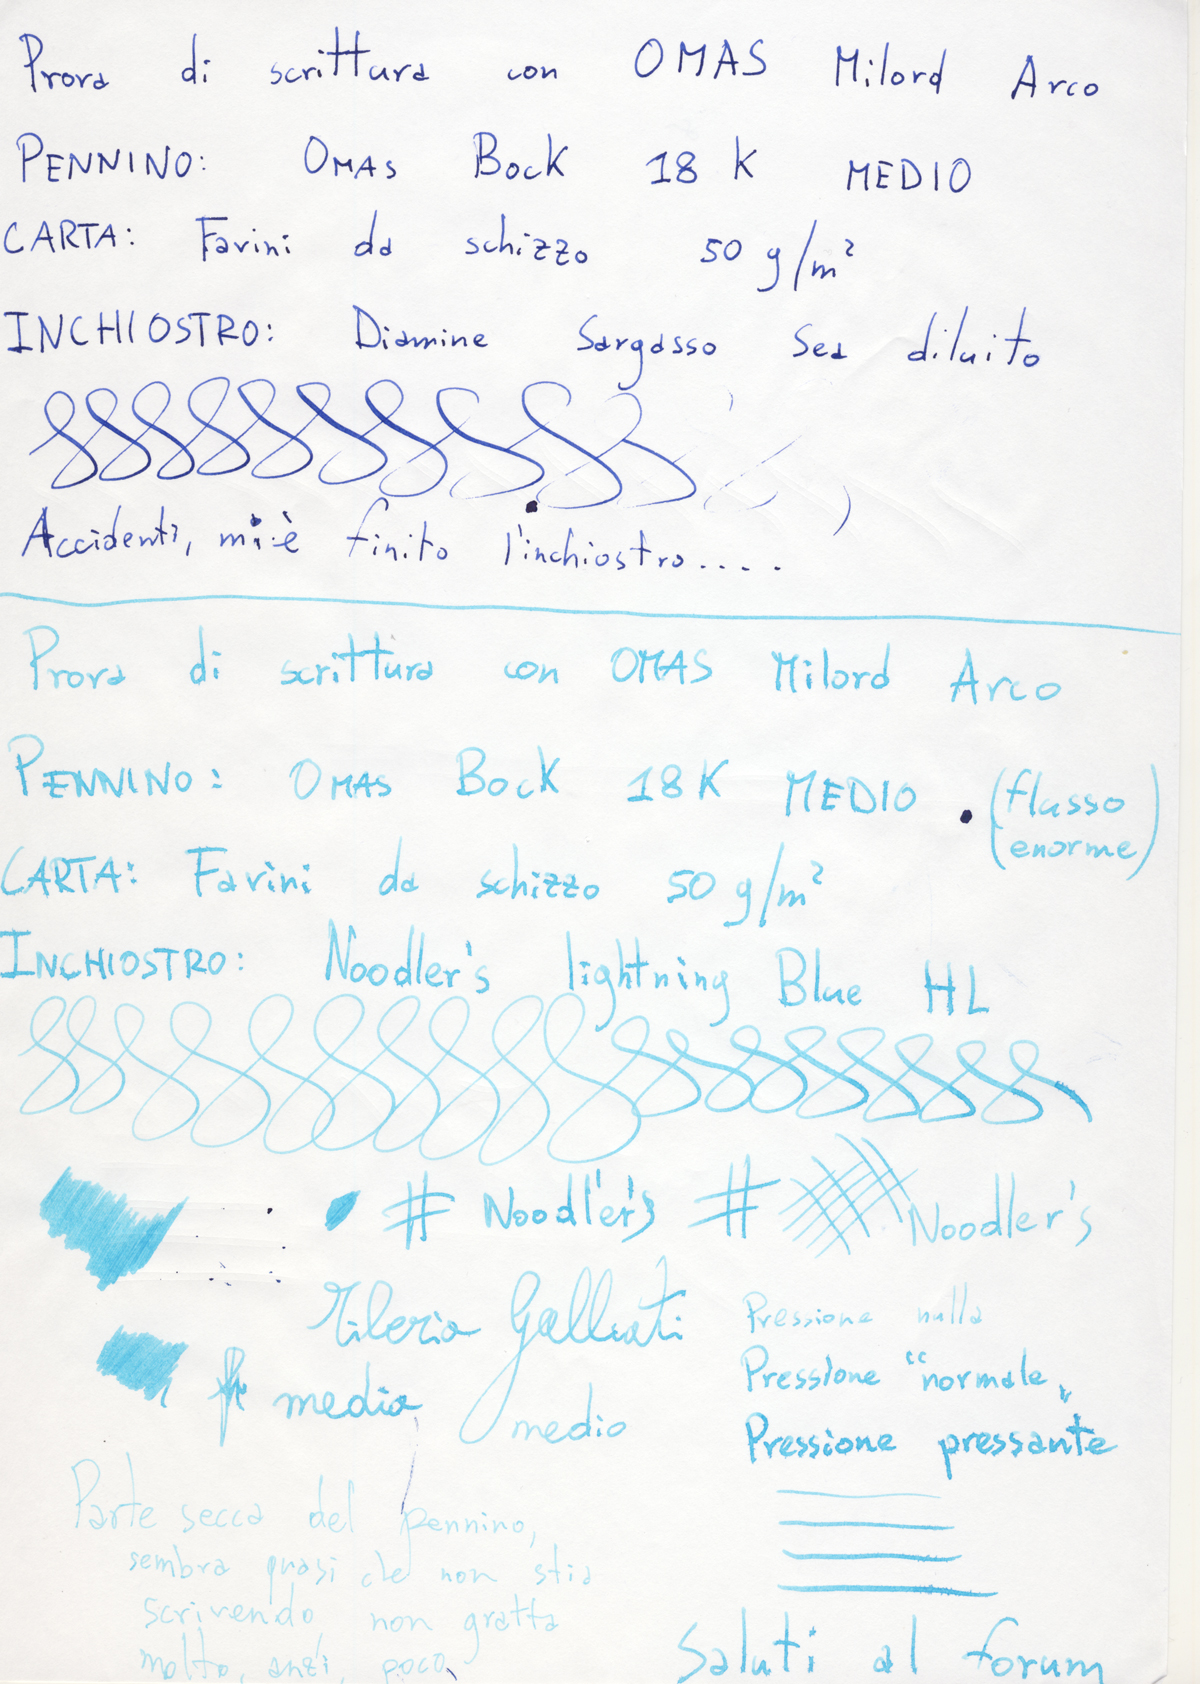 Prova di scrittura con OMAS Milord Arco
PENNINO: OMAS Bock 18 K MEDIO
CARTA: Favini da schizzo 50 g/m²
INCHIOSTRO: Diamine Sargasso Sea diluito
Accidenti, mi è finito l'inchiostro....
Prova di scrittura con OMAS Milord Arco
PENNINO: OMAS Bock 18K MEDIO (flusso
enorme)
CARTA: Favini da schizzo 50 g/m²
INCHIOSTRO: Noodler's lightning Blue HL
# Noodler's # Noodler's
Pressione nulla
Pressione "normale"
Pressione pressante
media
medio
Parte secca del pennino,
sembra quasi che non stia
scrivendo, non gratta
molto, anzi, poco
Saluti al forum